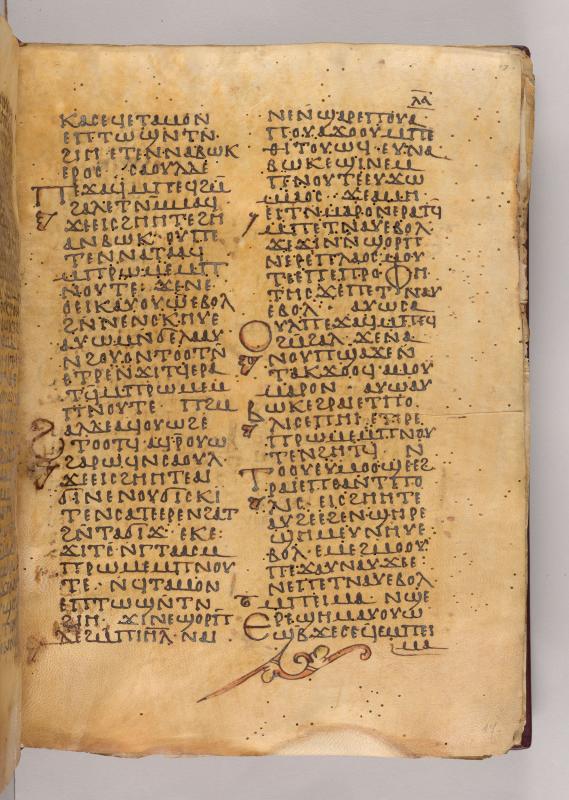 ⲗⲁ
ⲕⲁⲥⲉϥⲉⲧⲁⲙⲟⲛ
ⲉⲡⲧⲱⲱⲛ ⲧⲛ
ϩⲓⲏ ⲉⲧⲉⲛⲛⲁⲃⲱⲕ
ⲉⲣⲟⲥ ⲥⲁⲟⲩⲗ ⲇⲉ
ⲡⲉϫⲁϥ ⲙⲡⲉϥϩⲙ
ϩⲁⲗ ⲉⲧⲛⲙⲙⲁϥ
ϫⲉ ⲉⲓⲥϩⲏⲏⲧⲉ ⲧⲛ
ⲛⲁⲃⲱⲕ ⲟⲩ ⲡⲉ
ⲧⲉⲛⲛⲁⲧⲁⲁϥ
ⲙⲡⲣⲱⲙⲉ ⲙⲡ
ⲛⲟⲩⲧⲉ ϫⲉ ⲛⲉ
ⲟⲉⲓⲕ ⲁⲩⲟⲩⲱ ⲉⲃⲟⲗ
ϩⲛ ⲛⲉⲛϭⲛⲟⲟⲩⲉ
ⲁⲩⲱ ⲙⲛ ϭⲉ ⲗⲁⲁⲩ
ⲛϩⲟⲩⲟ ⲛⲧⲟⲟⲧⲛ
ⲉⲧⲣⲉⲛϫⲓⲧϥ ⲉⲣⲁ
ⲧϥ ⲙⲡⲣⲱⲙⲉ ⲙ
ⲡⲛⲟⲩⲧⲉ ⲡϩⲙ
ϩⲁⲗ ⲇⲉ ⲁϥⲟⲩⲱϩ ⲉ
ⲧⲟⲟⲧϥ ⲁϥⲣⲟⲩⲱ
ϩⲁⲣⲱϥ ⲛⲥⲁⲟⲩⲗ
ϫⲉ ⲉⲓⲥϩⲏⲏⲧⲉ ⲁⲓ
ϭⲓⲛⲉ ⲛⲟⲩϭⲓⲥⲕⲓ
ⲧⲉ ⲛⲥⲁⲧⲉⲉⲣⲉ ⲛϩⲁⲧ
ϩⲛ ⲧⲁϭⲓϫ ⲉⲕⲉ
ϫⲓⲧⲉ ⲛⲅⲧⲁⲁⲥ ⲙ
ⲡⲣⲱⲙⲉ ⲙⲡⲛⲟⲩ
ⲧⲉ ⲛϥⲧⲁⲙⲟⲛ
ⲉⲡⲧⲱⲱⲛ ⲧⲛ
ϩⲓⲏ ϫⲓⲛⲉϣⲟⲣⲡ
ⲇⲉ ϩⲙ ⲡⲓⲏⲗ ⲛⲁⲓ
ⲛⲉⲛϣⲁⲣⲉ ⲡⲟⲩⲁ
ⲡⲟⲩⲁ ϫⲟⲟⲩ ⲙⲡⲉ
ⲑⲓⲧⲟⲩⲱϥ ⲉⲩⲛⲁ
ⲃⲱⲕ ⲉϣⲓⲛⲉ ⲙ
ⲡⲛⲟⲩⲧⲉ ⲉⲩϫⲱ
ⲙⲙⲟⲥ ϫⲉ ⲁⲙⲏ
ⲉⲓⲧⲛ ⲙⲁⲣⲟⲛ ⲉⲣⲁⲧϥ
ⲙⲡⲉⲧⲛⲁⲩ ⲉⲃⲟⲗ
ϫⲉ ϫⲓⲛ ⲛϣⲟⲣⲡ
ⲛⲉⲣⲉ ⲡⲗⲁⲟⲥ ⲙⲟⲩ
ⲧⲉ ⲉⲡⲉⲡⲣⲟⲫⲏ
ⲧⲏⲥ ϫⲉ ⲡⲉⲧⲛⲁⲩ
ⲉⲃⲟⲗ ⲁⲩⲱ ⲥⲁ
ⲟⲩⲗ ⲡⲉϫⲁϥ ⲙⲡⲉϥ
ϩⲙϩⲁⲗ ϫⲉ ⲛⲁ
ⲛⲟⲩ ⲡϣⲁϫⲉ ⲛ
ⲧⲁⲕϫⲟⲟϥ ⲁⲙⲟⲩ
ⲙⲁⲣⲟⲛ ⲁⲩⲱ ⲁⲩ
ⲃⲱⲕ ⲉϩⲣⲁⲓ ⲉⲧⲡⲟ
ⲗⲓⲥ ⲉⲡⲙⲁ ⲉⲧⲉⲣⲉ
ⲡⲣⲱⲙⲉ ⲙⲡⲛⲟⲩ
ⲧⲉ ⲛϩⲏⲧϥ ⲛ
ⲧⲟⲟⲩ ⲉⲩⲙⲟⲟϣⲉ ⲉϩ
ⲣⲁⲓ ⲉⲡⲙⲁ ⲛⲧⲡⲟ
ⲗⲓⲥ ⲉⲓⲥϩⲏⲏⲧⲉ
ⲁⲩϩⲉ ⲉϩⲉⲛϣⲉⲉⲣⲉ
ϣⲏⲙ ⲉⲩⲛⲏⲩ ⲉ
ⲃⲟⲗ ⲉⲙⲉϩ ⲙⲟⲟⲩ
ⲡⲉϫⲁⲩ ⲛⲁⲩ ϫⲉ
ⲛⲉⲡⲉⲧⲛⲁⲩ ⲉⲃⲟⲗ
ⲙⲡⲉⲓⲙⲁ ⲛϣⲉ
ⲉⲣⲉ ϣⲏⲙ ⲁⲩⲟⲩⲱ
ϣⲃ ϫⲉ ⲥⲉ ϥⲙⲡⲉⲓ
ⲙⲁ